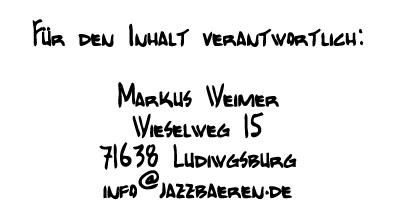 Für den Inhalt verantwortlich:
Markus Weimer
Wieselweg 15
71638 Ludiwgsburg
info@jazzbaeren.de